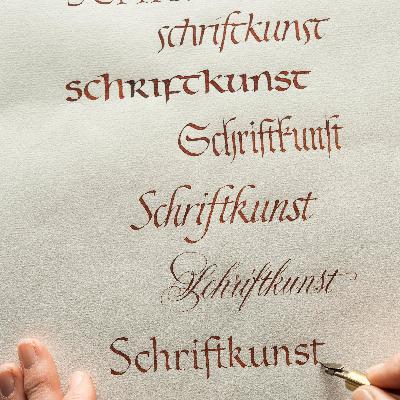 schriftkunst
schriftkunst
Schriftkunst
Schriftkunst
Schriftkunst
Schriftkunst